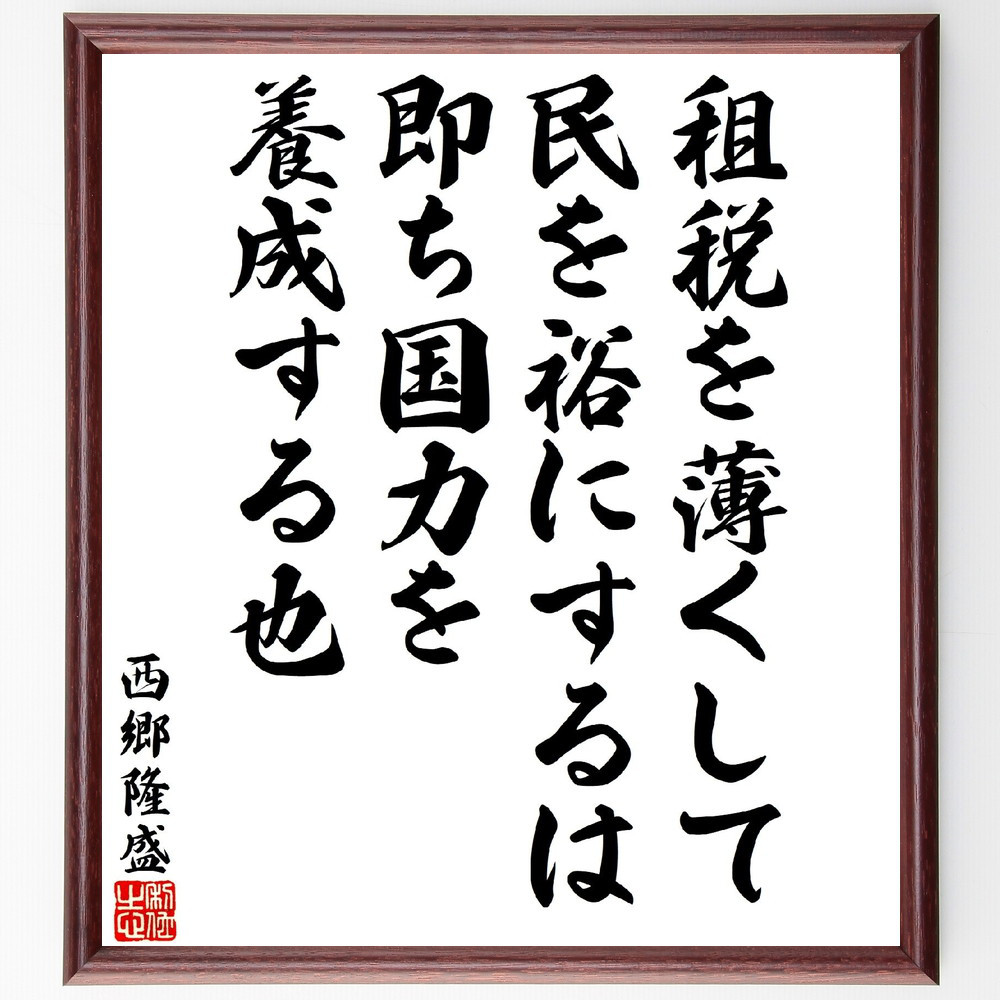 租税を薄くして
民を裕にするは
即ち国力を
養成する也
西郷隆盛